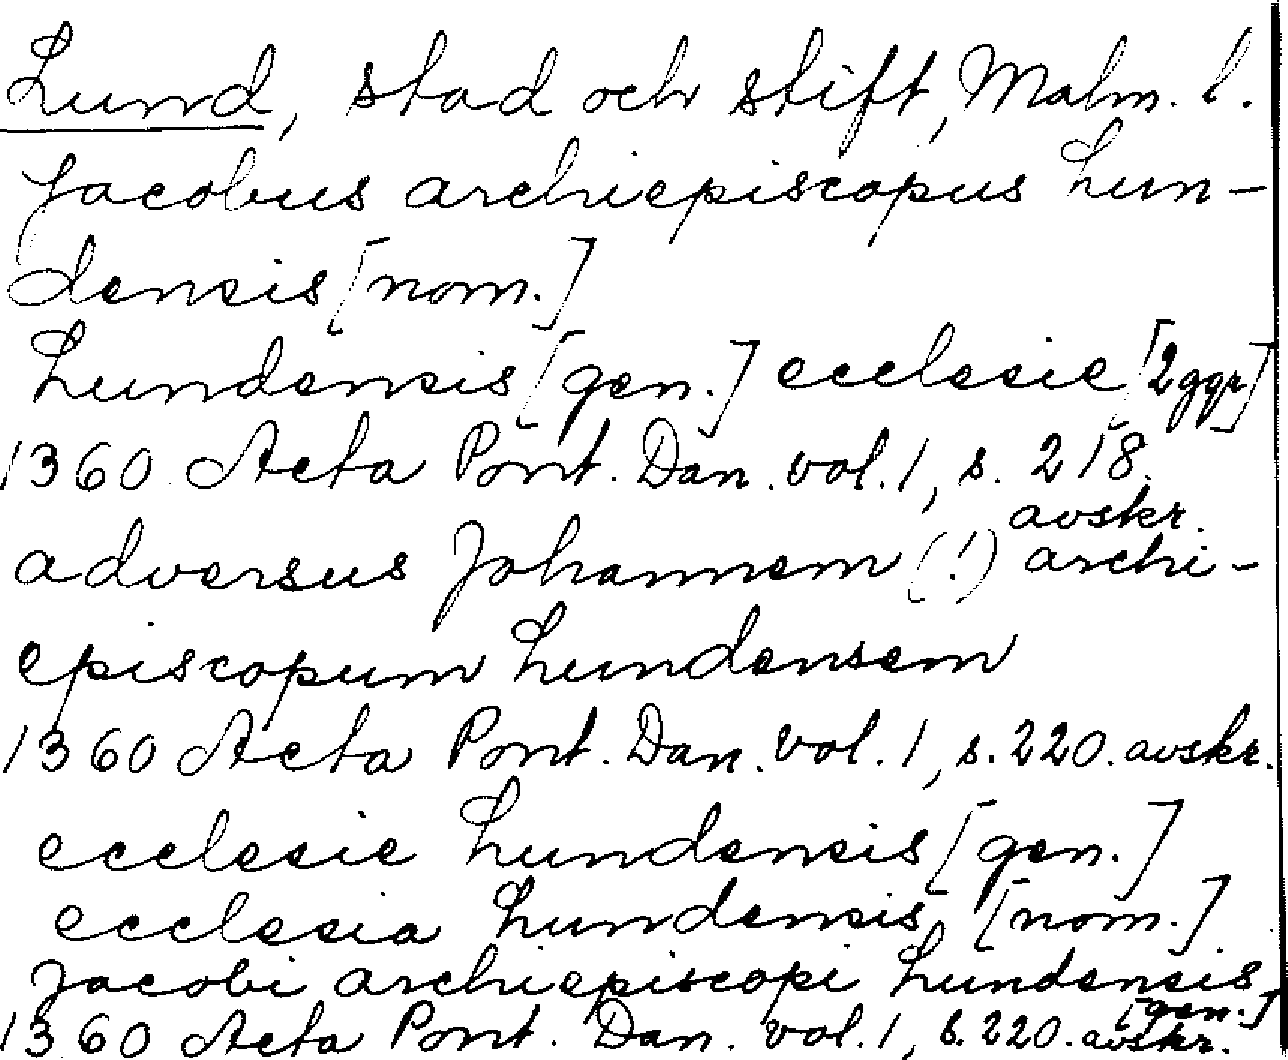 Lund, stad och stift, Malm. l.
Jacobus archiepiscopus Lun-
densis [nom.]
Lundensis [gen.] ecclesie [2 ggr]
1360 Acta Pont. Dan. vol. 1, s. 218.
avskr.
adversus Johannem (!) archi-
episcopum Lundensem
1360 Acta Pont. Dan. vol. 1, s. 220. avskr.
ecclesie Lundensis [gen.]
ecclesia Lundensis [nom.]
Jacobi archiepiscopi Lundensis
[gen.]
1360 Acta Pont. Dan. vol. 1, s. 220. avskr.